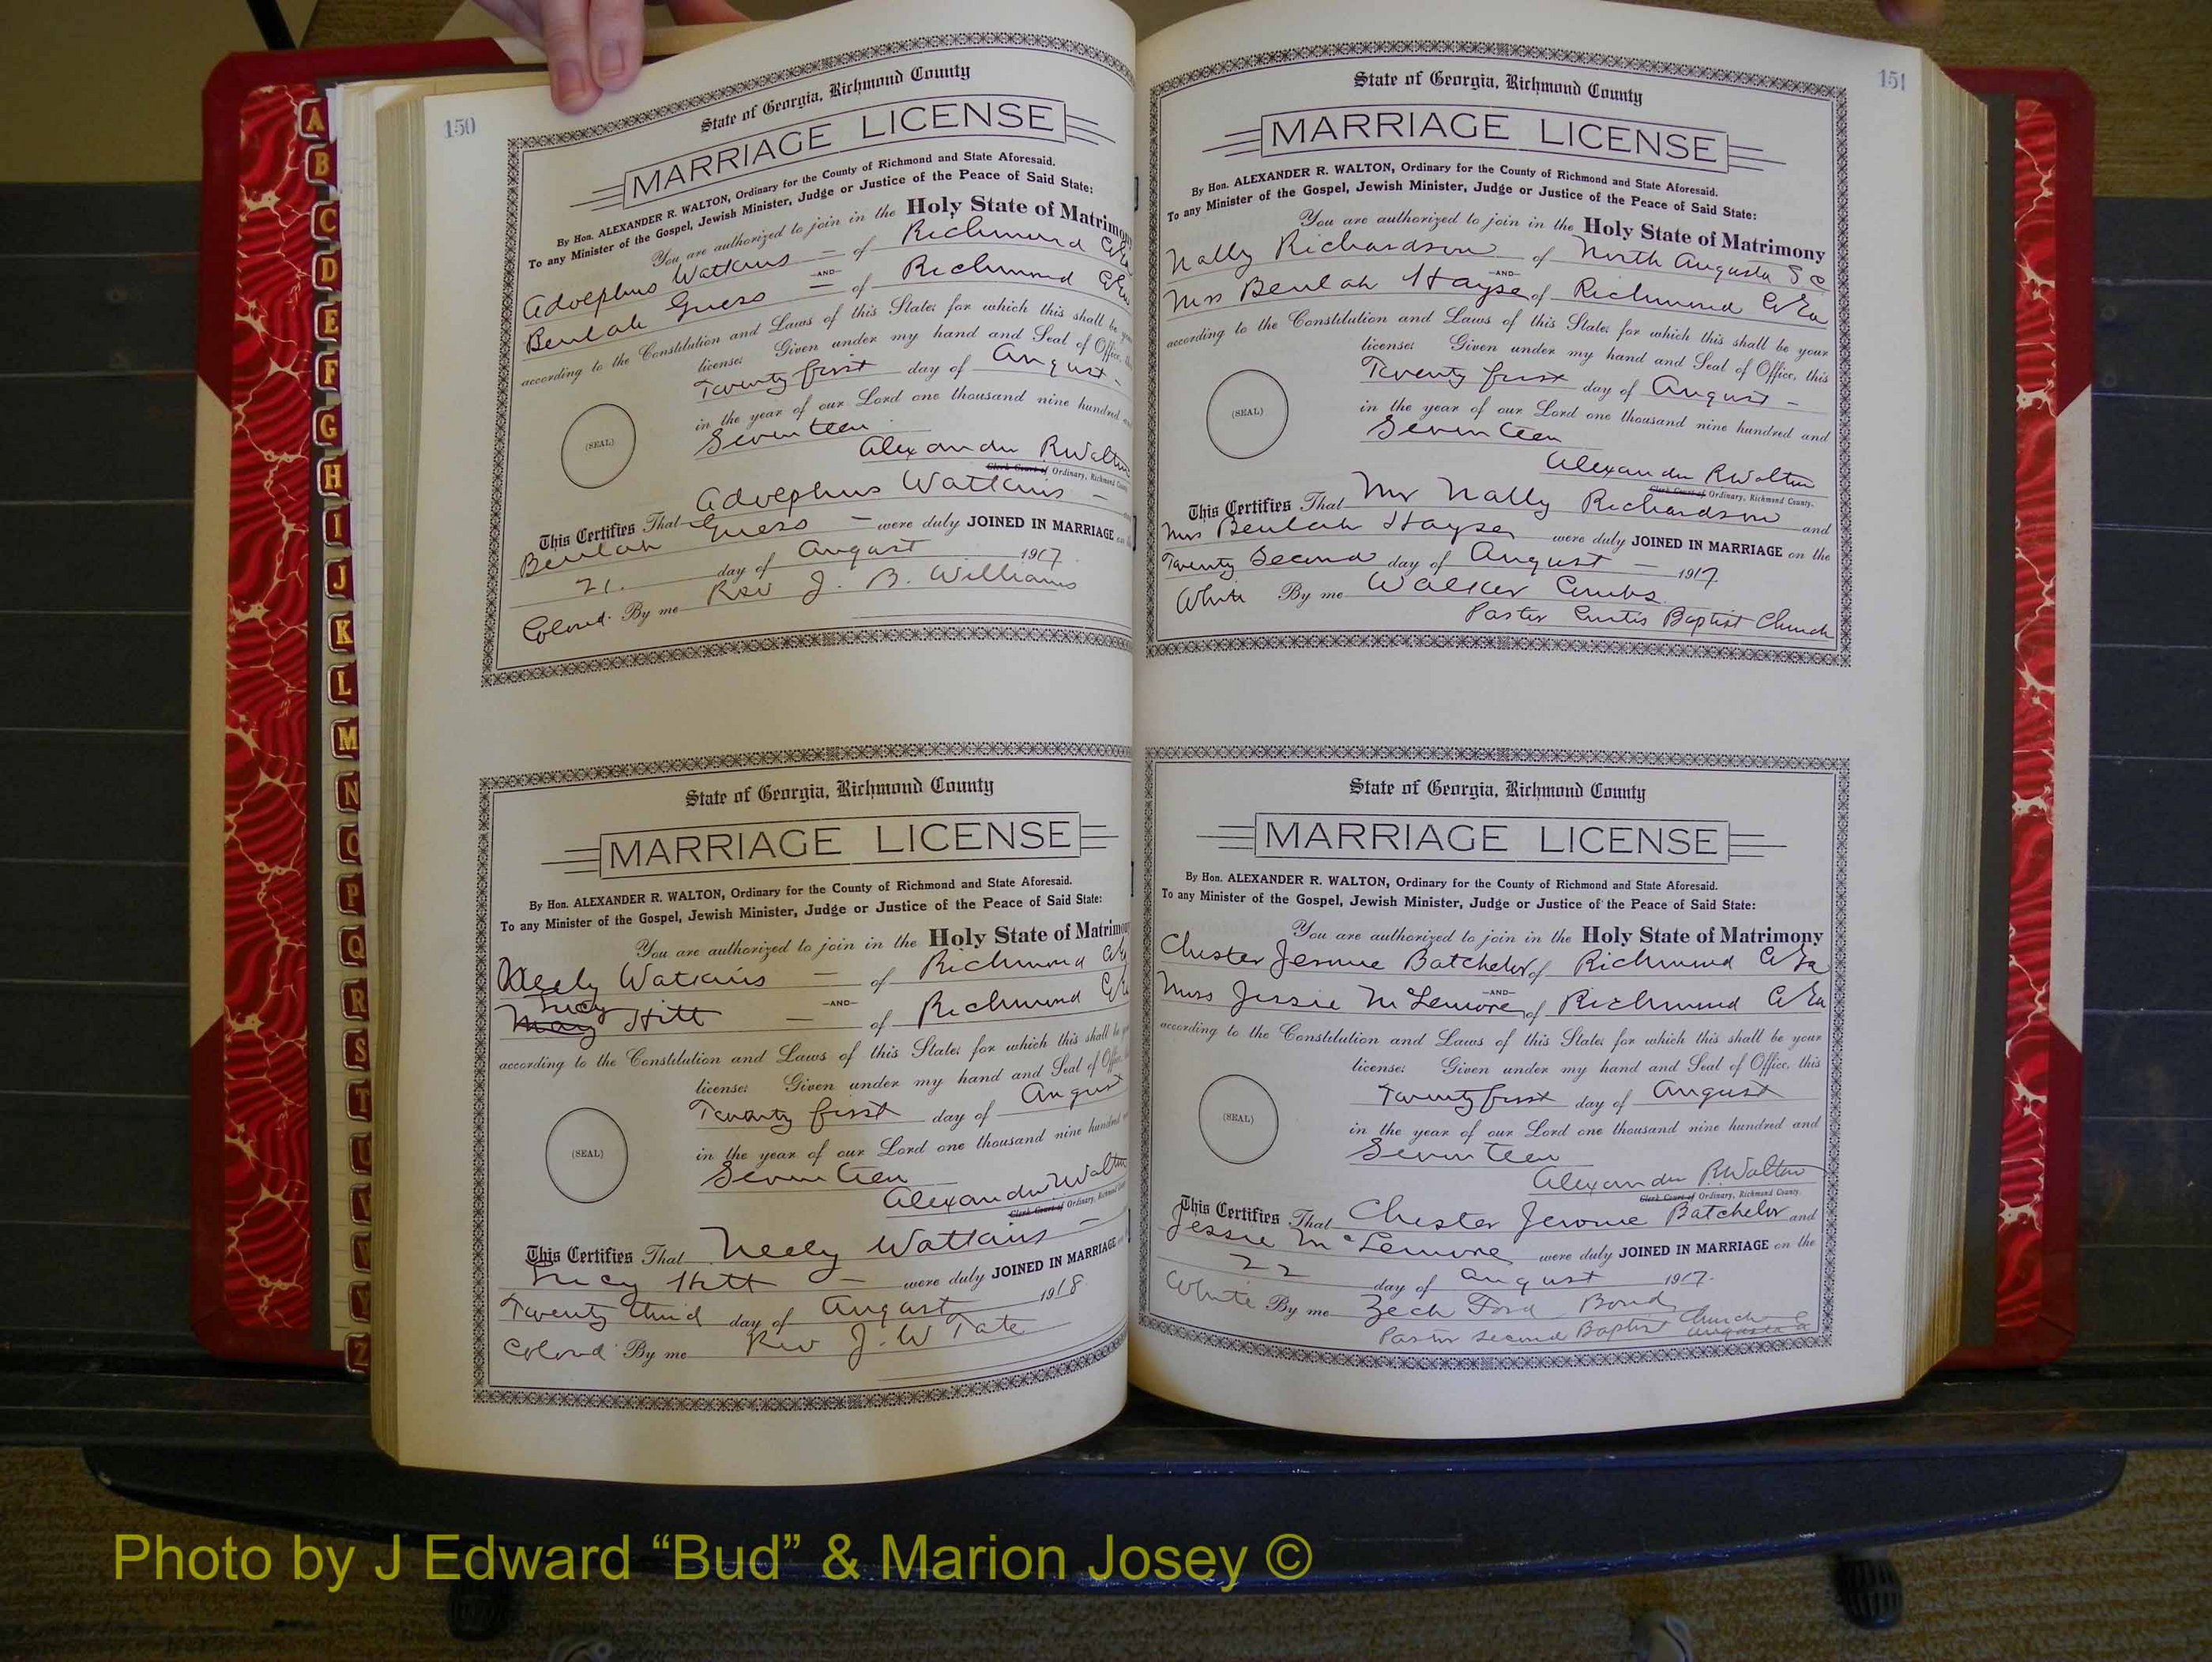 150
State of Georgia, Richmond County
MARRIAGE LICENSE
By Hon. ALEXANDER R. WALTON, Ordinary for the County of Richmond and State Aforesaid.
To any Minister of the Gospel, Jewish Minister, Judge or Justice of the Peace of Said State:
You are authorized to join in the Holy State of Matrimony
Adolphus Watkins — of Richmond
-AND-
Beulah Guess — of Richmond
according to the Constitution and Laws of this State; for which this shall be
license: Given under my hand and Seal of Office,
Twenty first day of August -
in the year of our Lord one thousand nine hundred
Seventeen
(SEAL)
Alexander R Walton
Clerk Court of Ordinary, Richmond County
This Certifies That Adolphus Watkins —
Beulah Guess — were duly JOINED IN MARRIAGE on
21. day of August 1917.
Colored. By me Rev J. B. Williams
State of Georgia, Richmond County
MARRIAGE LICENSE
By Hon. ALEXANDER R. WALTON, Ordinary for the County of Richmond and State Aforesaid.
To any Minister of the Gospel, Jewish Minister, Judge or Justice of the Peace of Said State:
You are authorized to join in the Holy State of Matrimony
Neely Watkins — of Richmond
-AND-
Lucy
May Hitt — of Richmond
according to the Constitution and Laws of this State; for which this shall be
license: Given under my hand and Seal of Office,
Twenty first day of August
in the year of our Lord one thousand nine hundred
Seventeen
(SEAL)
Alexander R Walton
Clerk Court of Ordinary, Richmond
This Certifies That Neely Watkins —
Lucy Hitt — were duly JOINED IN MARRIAGE
Twenty third day of August 1918
Colored By me Rev J. W Tate
151
State of Georgia, Richmond County
MARRIAGE LICENSE
By Hon. ALEXANDER R. WALTON, Ordinary for the County of Richmond and State Aforesaid.
To any Minister of the Gospel, Jewish Minister, Judge or Justice of the Peace of Said State:
You are authorized to join in the Holy State of Matrimony
Nally Richardson of North Augusta S C
-AND-
Mrs Beulah Hayse of Richmond Co Ga
according to the Constitution and Laws of this State; for which this shall be your
license: Given under my hand and Seal of Office, this
Twenty first day of August —
in the year of our Lord one thousand nine hundred and
Seventeen
(SEAL)
Alexander R Walton
Clerk Court of Ordinary, Richmond County.
This Certifies That Mr Nally Richardson and
Mrs Beulah Hayse were duly JOINED IN MARRIAGE on the
Twenty Second day of August — 1917
White By me Walker Combs.
Pastor Curtis Baptist Church
State of Georgia, Richmond County
MARRIAGE LICENSE
By Hon. ALEXANDER R. WALTON, Ordinary for the County of Richmond and State Aforesaid.
To any Minister of the Gospel, Jewish Minister, Judge or Justice of the Peace of Said State:
You are authorized to join in the Holy State of Matrimony
Chester Jerome Batchelor of Richmond Co Ga
-AND-
Miss Jessie McLemore of Richmond Co Ga
according to the Constitution and Laws of this State; for which this shall be your
license: Given under my hand and Seal of Office, this
Twenty first day of August
in the year of our Lord one thousand nine hundred and
Seventeen
(SEAL)
Alexander R. Walton
Clerk Court of Ordinary, Richmond County
This Certifies That Chester Jerome Batchelor and
Jessie McLemore were duly JOINED IN MARRIAGE on the
22 day of August 1917.
White By me Zech Ford Bond
Pastor Second Baptist Church
Augusta Ga
A
B
C
D
E
F
G
H
I
J
K
L
M
N
O
P
Q
R
S
T
Z
Photo by J Edward “Bud” & Marion Josey ©